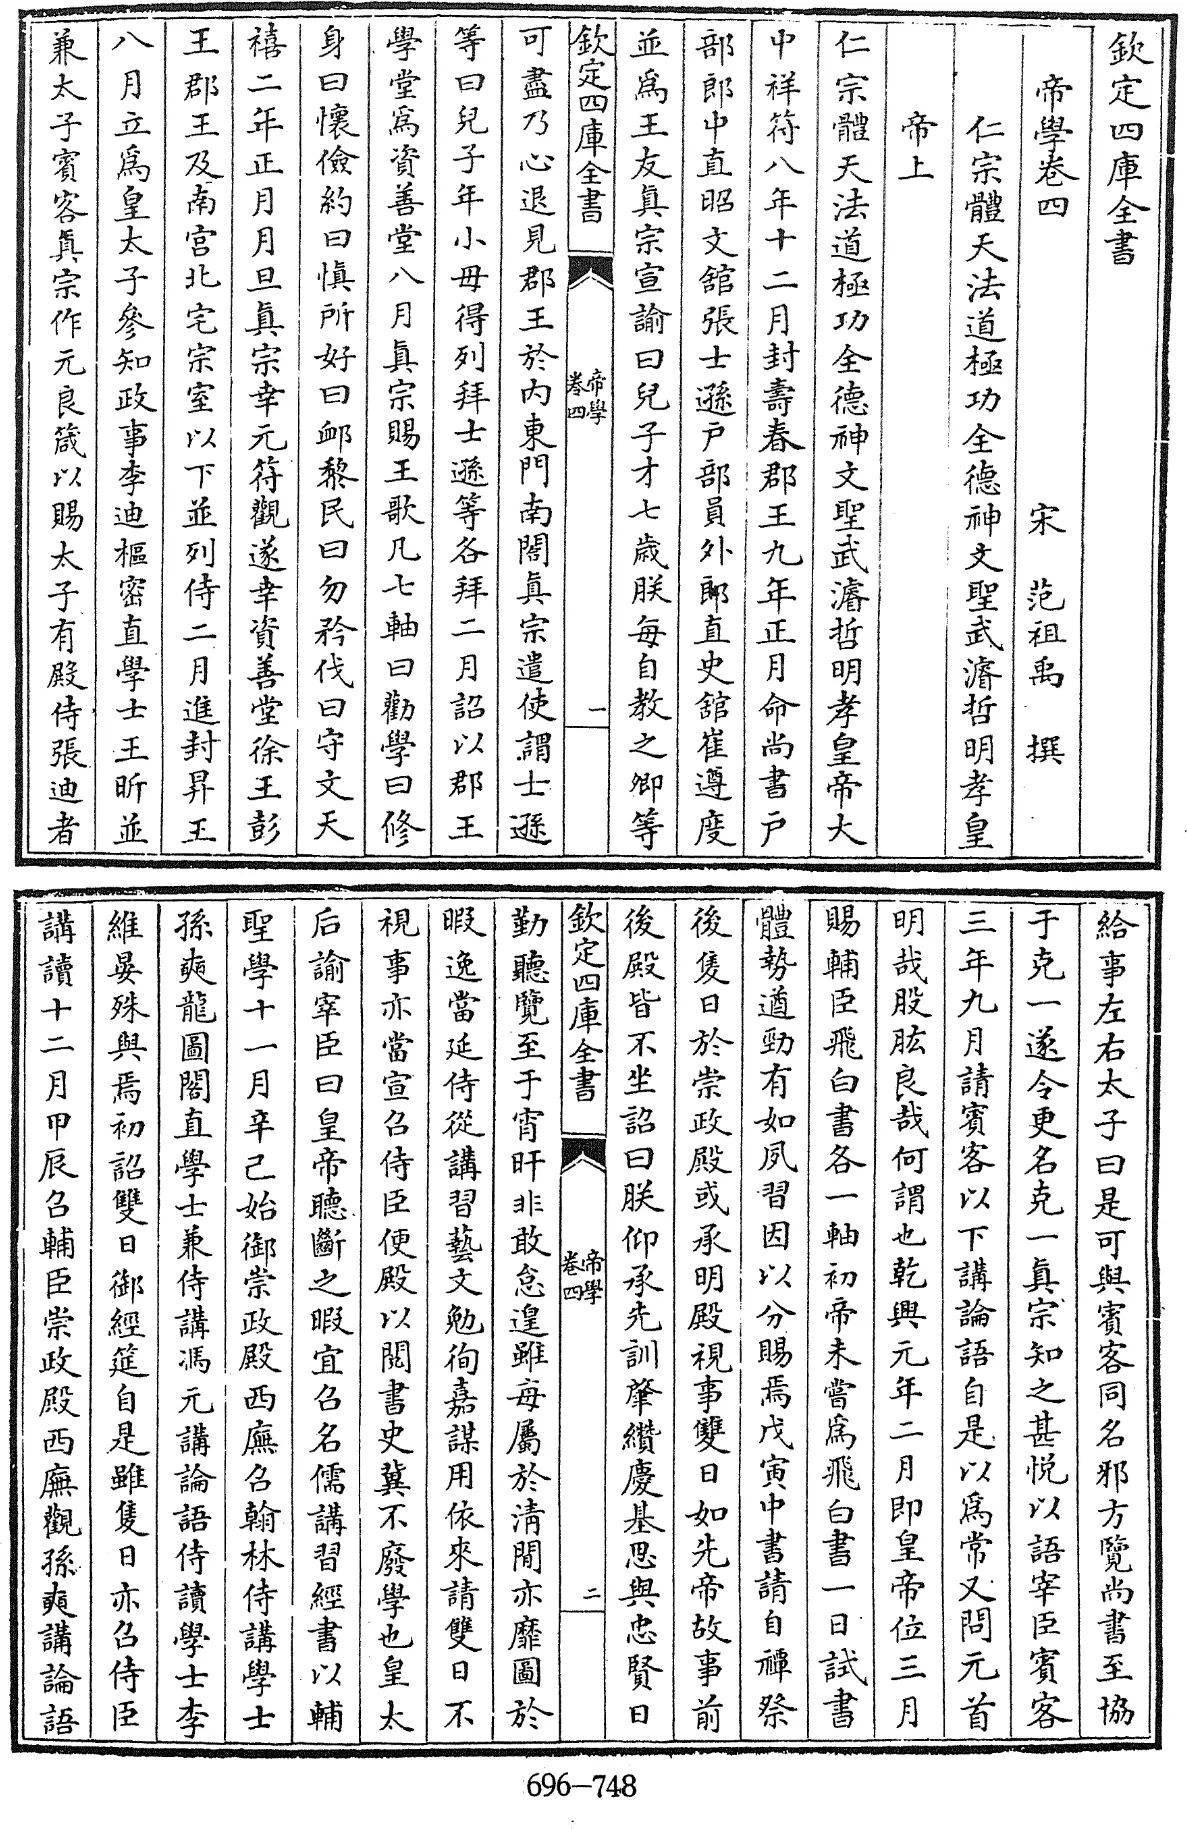 欽定四庫全書
帝學卷四
宋　范祖禹　撰
仁宗體天法道極功全德神文聖武濬哲明孝皇
帝上
仁宗體天法道極功全德神文聖武濬哲明孝皇帝大
中祥符八年十二月封壽春郡王九年正月命尚書戶
部郎中直昭文館張士遜戶部員外郎直史館崔遵度
並爲王友真宗宣諭曰兒子才七歲朕每自教之卿等
欽定四庫全書
帝學
卷四
一
可盡乃心退見郡王於内東門南閤真宗遣使謂士遜
等曰兒子年小毋得列拜士遜等各拜二月詔以郡王
學堂爲資善堂八月真宗賜王歌凡七軸曰勸學曰修
身曰懷儉約曰慎所好曰卹黎民曰勿矜伐曰守文天
禧二年正月月旦真宗幸元符觀遂幸資善堂徐王彭
王郡王及南宮北宅宗室以下並列侍二月進封昇王
八月立爲皇太子參知政事李迪樞密直學士王昕並
兼太子賓客真宗作元良箴以賜太子有殿侍張迪者
給事左右太子曰是可與賓客同名邪方覽尚書至協
于克一遂令更名克一真宗知之甚悅以語宰臣賓客
三年九月請賓客以下講論語自是以爲常又問元首
明哉股肱良哉何謂也乾興元年二月即皇帝位三月
賜輔臣飛白書各一軸初帝未嘗爲飛白書一日試書
體勢遒勁有如夙習因以分賜焉戊寅中書請自禫祭
後隻日於崇政殿或承明殿視事雙日如先帝故事前
後殿皆不坐詔曰朕仰承先訓肇纘慶基思與忠賢日
欽定四庫全書
帝學
卷四
二
勤聽覽至于宵旰非敢怠遑雖每屬於清閒亦靡圖於
暇逸當延侍從講習藝文勉徇嘉謀用依來請雙日不
視事亦當宣召侍臣便殿以閱書史冀不廢學也皇太
后諭宰臣曰皇帝聽斷之暇宜召名儒講習經書以輔
聖學十一月辛己始御崇政殿西廡召翰林侍講學士
孫奭龍圖閣直學士兼侍講馮元講論語侍讀學士李
維晏殊與焉初詔雙日御經筵自是雖隻日亦召侍臣
講讀十二月甲辰召輔臣崇政殿西廡觀孫奭講論語
696-748